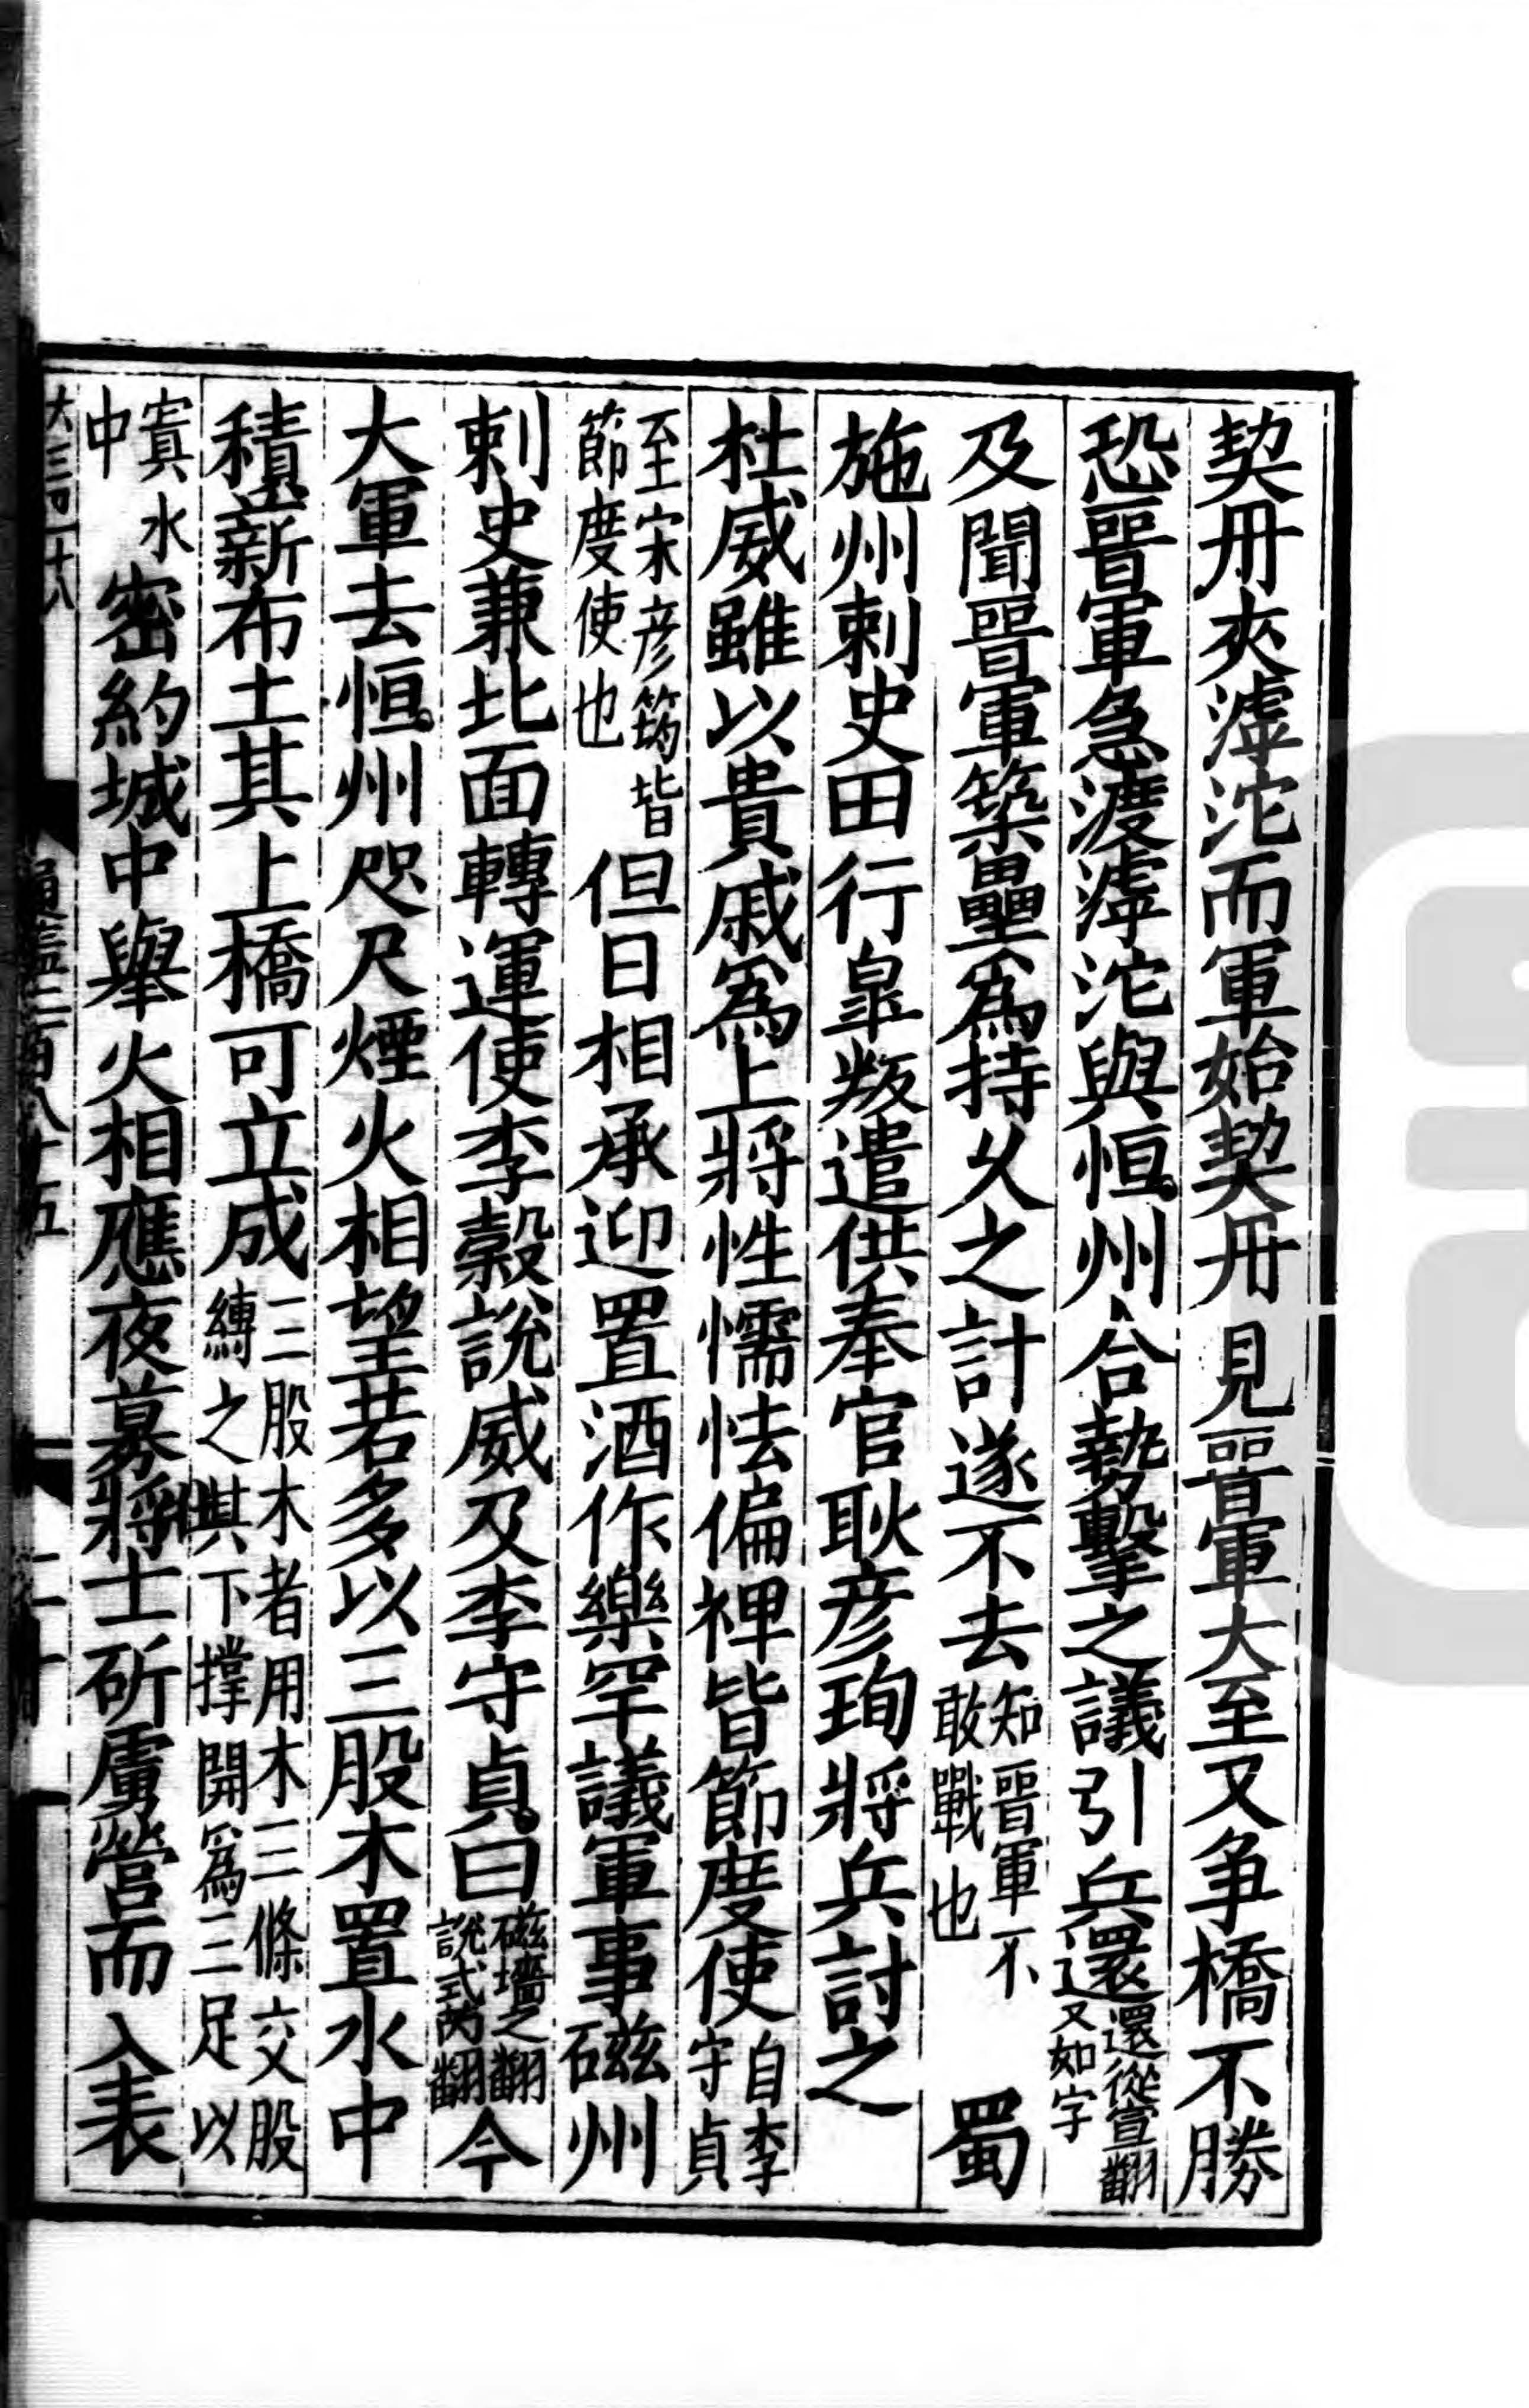 契丹夾滹沱而軍始契丹見晉軍大至又争橋不勝
恐晉軍急渡滹沱與恒州合勢擊之議引兵還還從宣翻又如字
及聞晉軍築壘爲持久之計遂不去知晉軍不敢戰也 蜀
施州刺史田行皐叛遣供奉官耿彦珣將兵討之
杜威雖以貴戚爲上將性懦怯偏裨皆節度使自李守貞
至宋彦筠皆節度使也但日相承迎置酒作樂罕議軍事磁州
刺史兼北面轉運使李穀說威及李守貞曰磁墻之翻說式芮翻今
大軍去恒州咫尺煙火相望若多以三股木置水中
積薪布土其上橋可立成三股木者用木三條交股縛之其下撑開爲三足以
寘水中密約城中舉火相應夜募將士斫虜營而入表
大三可一十八
通鑑二百八十五
二十